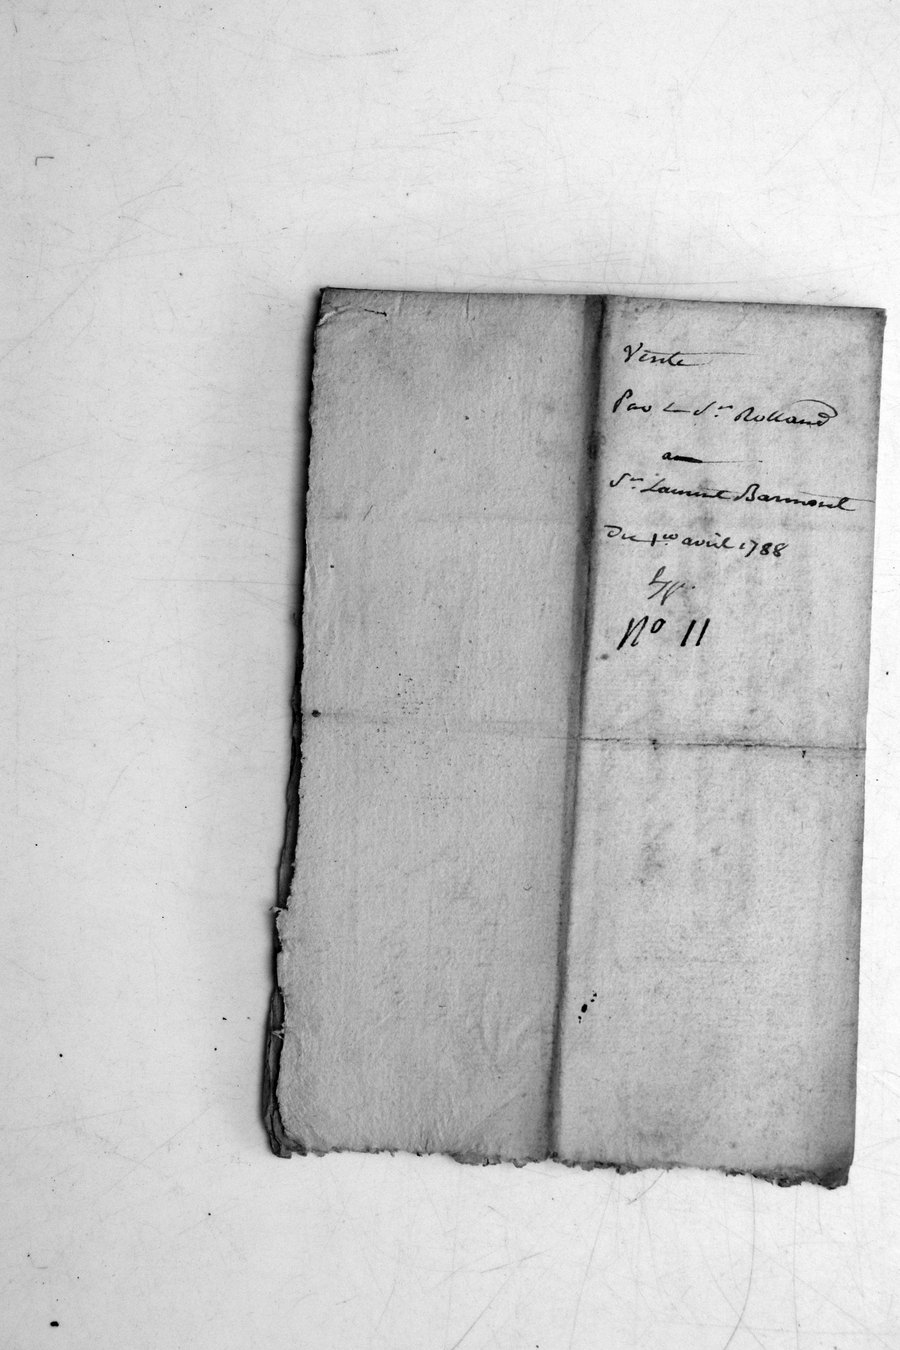 Vente
Par le Sr. Rolland
au
Sr. Laurent Barmont
Du 1er avril 1788
No 11